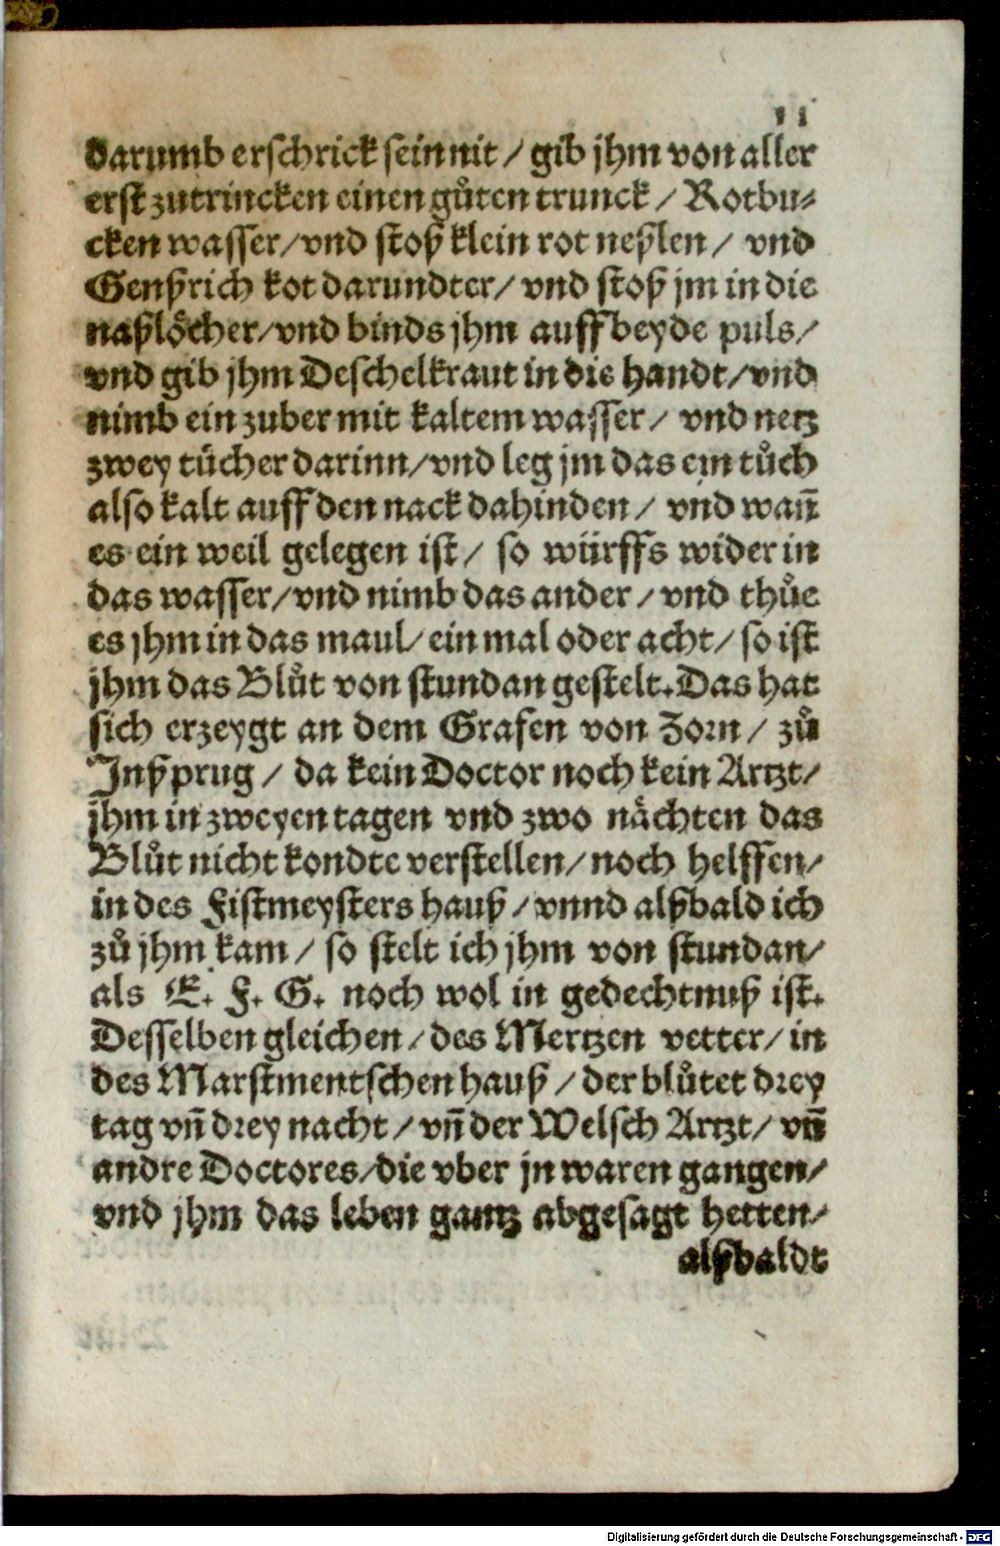 11
darumb erschrick sein nit / gib jhm von aller
erst zutrincken einen gůten trunck / Rotbu⸗
cken wasser/vnd stoß klein rot neßlen / vnd
Genßrich kot darundter/ vnd stoß jm in die
naßlöcher/vnd binds jhm auff beyde puls/
vnd gib jhm Deschelkraut in die handt/vnd
nimb ein zuber mit kaltem wasser / vnd netz
zwey tücher darinn/vnd leg jm das ein tůch
also kalt auff den nack dahinden / vnd wañ
es ein weil gelegen ist / so würffs wider in
das wasser/vnd nimb das ander / vnd thůe
es jhm in das maul/ ein mal oder acht/ so ist
jhm das Blůt von stundan gestelt. Das hat
sich erzeygt an dem Grafen von Zorn / zů
Jnßprug / da kein Doctor noch kein Artzt/
jhm in zweyen tagen vnd zwo nächten das
Blůt nicht kondte verstellen/ noch helffen/
in des Fistmeysters hauß / vnnd alßbald ich
zů jhm kam / so stelt ich jhm von stundan/
als E. F. G. noch wol in gedechtnuß ist.
Desselben gleichen / des Mertzen vetter/ in
des Marstmentschen hauß / der blůtet drey
tag vñ drey nacht / vñ der Welsch Artzt/ vñ
andre Doctores/die vber jn waren gangen/
vnd jhm das leben gantz abgesagt hetten/
alßbaldt
Digitalisierung gefördert durch die Deutsche Forschungsgemeinschaft - DFG